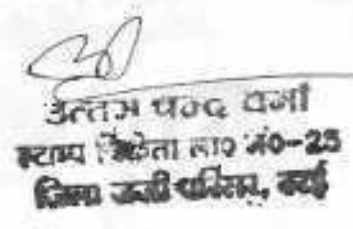 उत्तम चन्द वर्मा
स्टाम्प विक्रेता ला० नं०-25
जिला जजी परिसर,